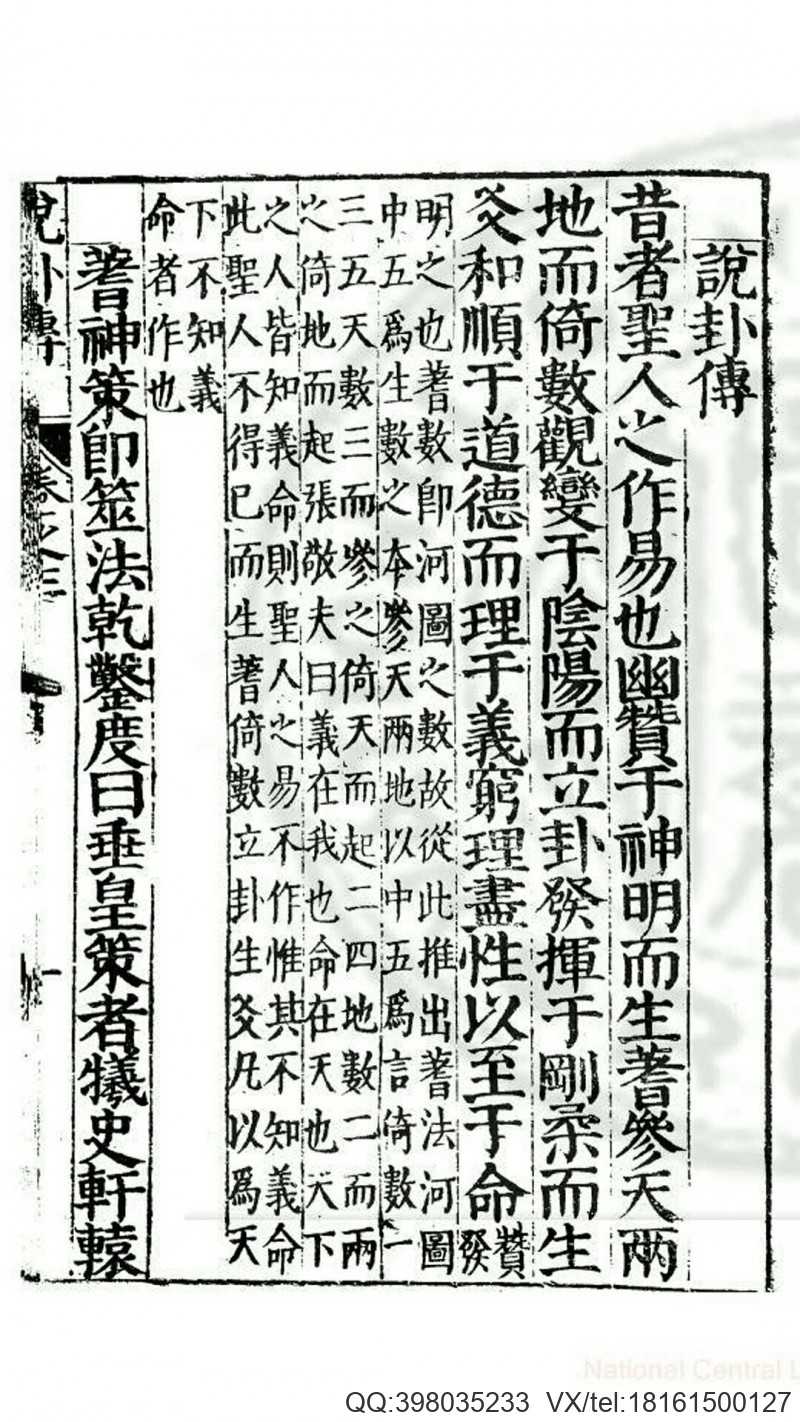 說卦傳
昔者聖人之作易也幽贊于神明而生蓍參天兩
地而倚數觀變于陰陽而立卦發揮于剛柔而生
爻和順于道德而理于義窮理盡性以至于命贊發
明之也蓍數即河圖之數故從此推出蓍法河圖
中五爲生數之本參天兩地以中五爲言倚數一
三五天數三而參之倚天而起二四地數二而兩
之倚地而起張敬夫曰義在我也命在天也天下
之人皆知義命則聖人之易不作惟其不知義命
此聖人不得已而生蓍倚數立卦生爻凡以爲天
下不知義
命者作也
蓍神策即筮法乾鑿度曰垂皇策者犧史軒轅
說卦傳 卷之三 一
National Central L
QQ:398035233 VX/tel:18161500127